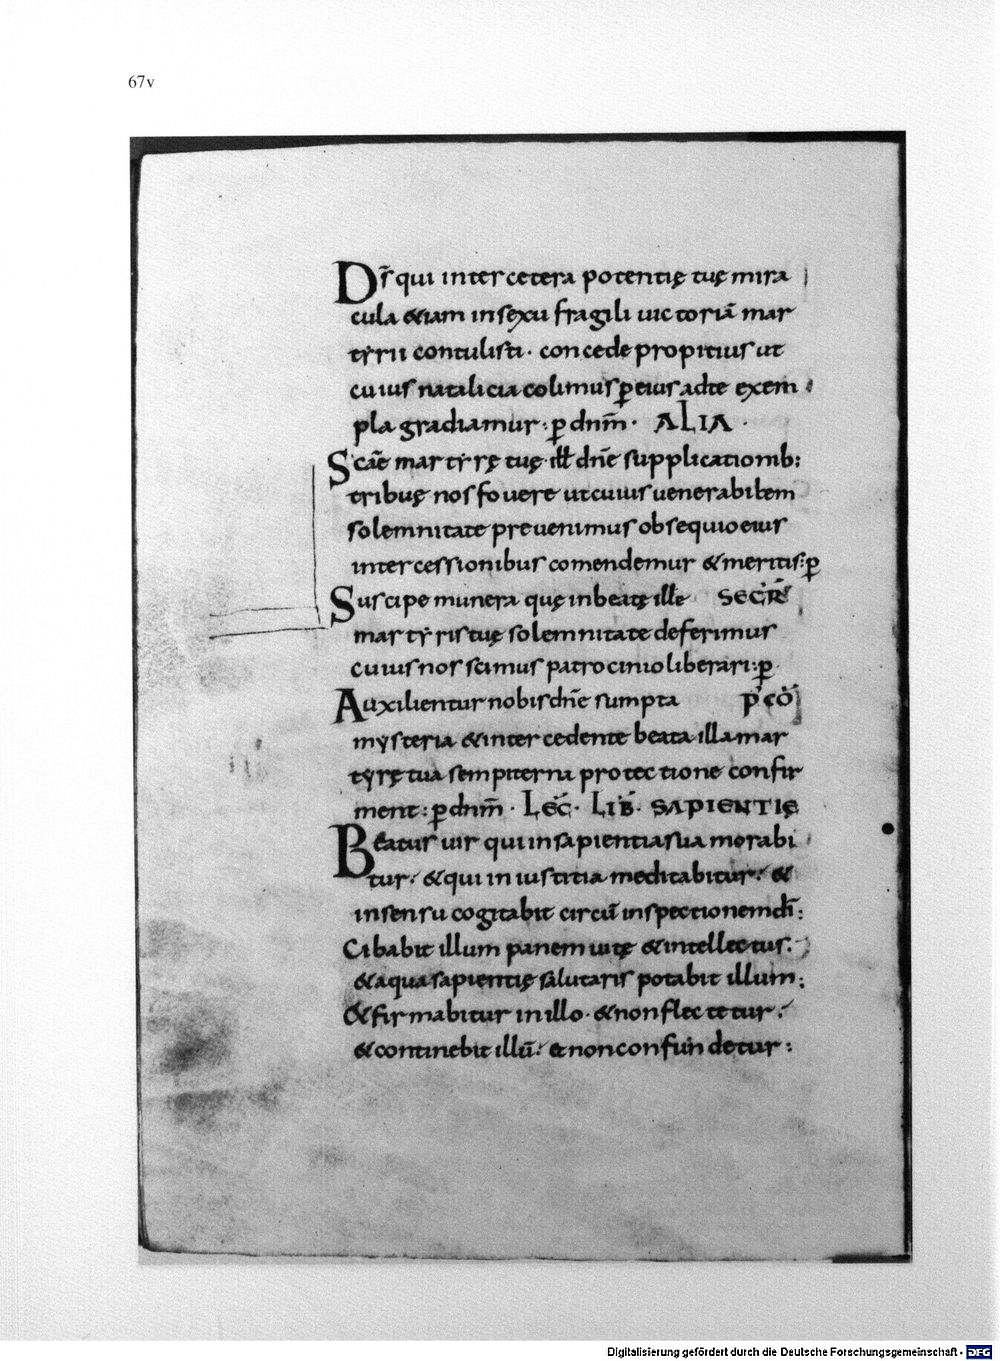 67v
Ds̄ qui inter cetera potentię tuę mira
cula &iam in sexu fragili uictoriā mar
tyrii contulisti· concede propitius ut
cuius natalicia colimus p̲ eius ad te exem
pla gradiamur: p̲ dnm̄· ALIA·
Scāe martyrę tuę· ill̄ dn̄e supplicationib:
tribuę nos fouere ut cuius uenerabilem
solemnitate preuenimus obsequio eius
intercessionibus comendemur & meritis: p̲
Suscipe munera quę in beatę ille SECR̄
martyris tuę solemnitate deferimus
cuius nos scimus patrocinio liberari: p̲
Auxilientur nobis dn̄e sumpta p̄ cō
mysteria & intercedente beata illa mar
tyrę tua sempiterna protectione confir
ment: p̲ dnm̄· LEC̄· LIB̄· SAPIENTIĘ
Beatus uir qui in sapientia sua morabi
tur: & qui in iustitia meditabitur: &
in sensu cogitabit circū inspectionem dī:
Cibabit illum panem uitę & intellectus:
& aqua sapientię salutaris potabit illum:
& firmabitur in illo· & non flectetur:
& continebit illū: et non confundetur:
Digitalisierung gefördert durch die Deutsche Forschungsgemeinschaft - DFG